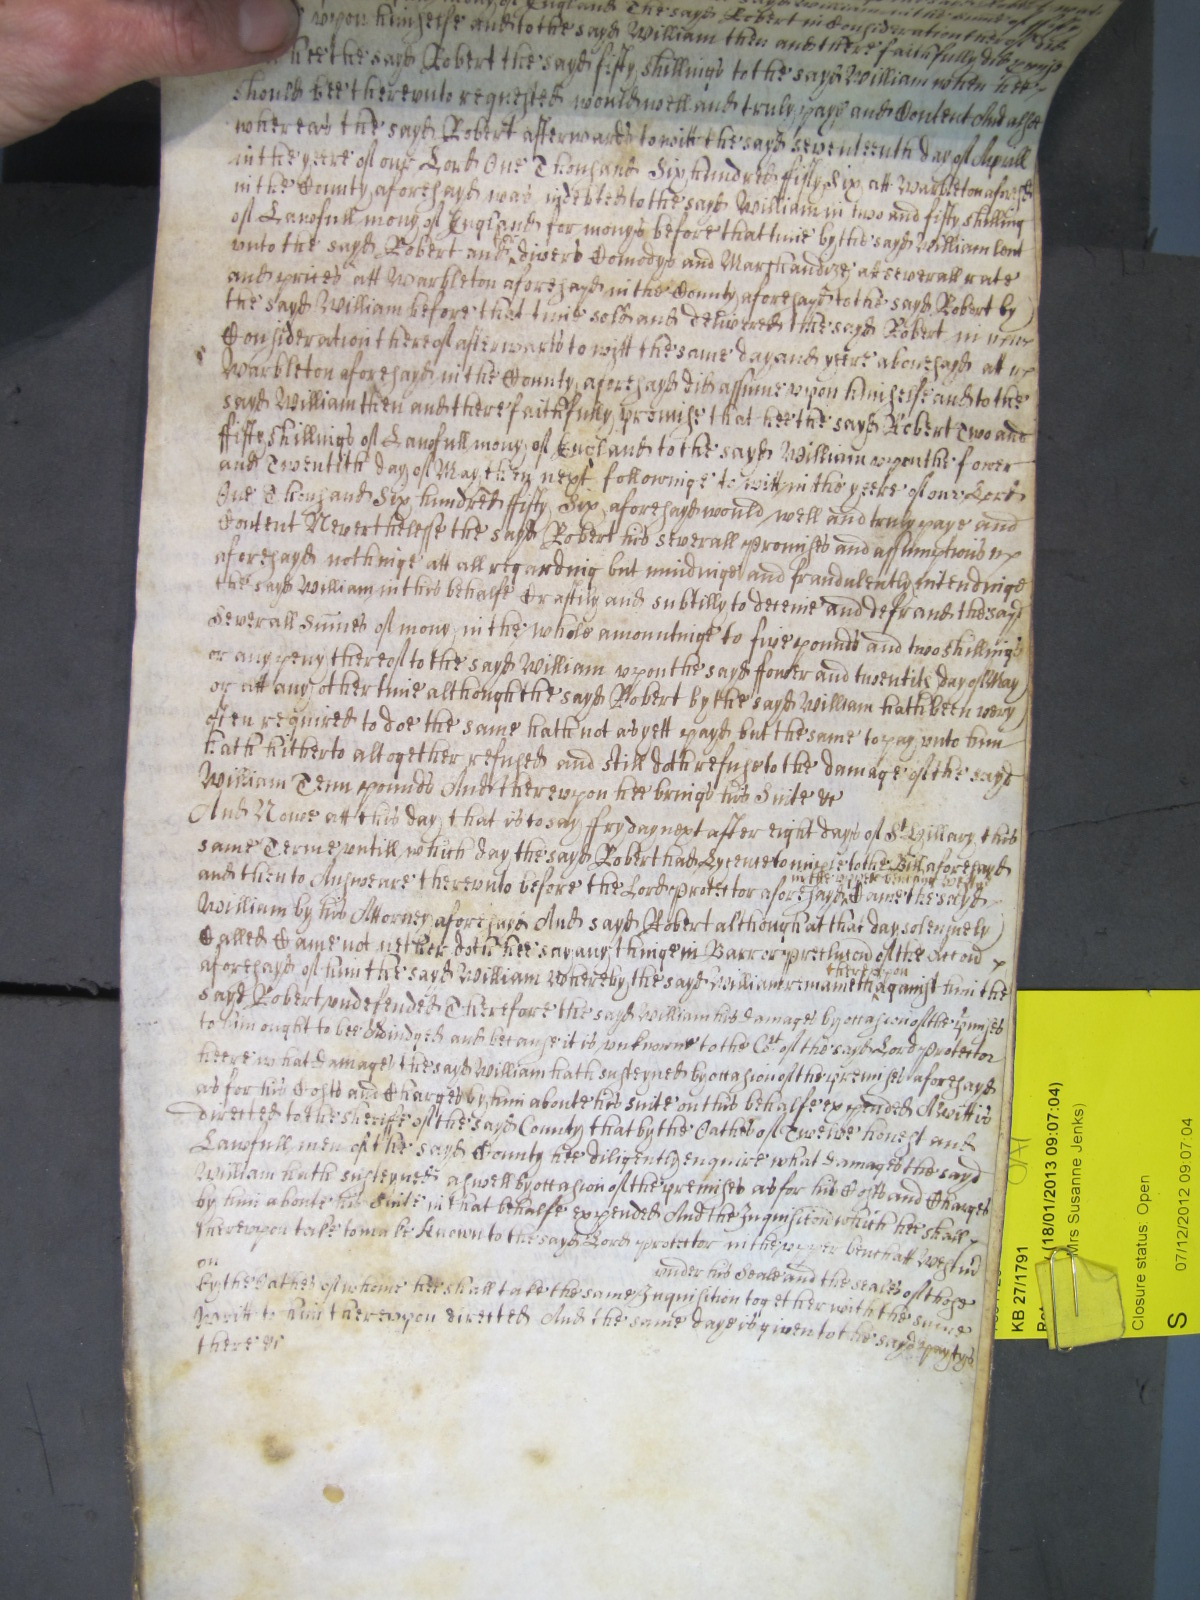 mony of England The sayd Robert in Consideration thereof did
upon himselfe and to the sayd William then and there faithfully did promise
hee the sayd Robert the sayd fifty shillings to the sayd William when hee
should bee therevnto requested would well and truly pay and Content And also
whereas the sayd Robert afterwards to witt the sayd seventeenth day of Aprill
in the yeere of our Lord One Thousand Six hundred fifty Six att Warbleton aforesayd
in the County aforesayd was indebted to the sayd William in two and fifty shilling
of Lawfull mony of England for monys before that time by the sayd William lent
vnto the sayd Robert and for divers Comodys and Marchandizes at severall rate
and prices att Warbleton aforesayd in the County aforesayd to the sayd Robert by
the sayd William before that time sold and delivered the sayd Robert in
Consideration thereof afterwards to witt the same day and yeere abovesayd att
Warbleton aforesayd in the County aforesayd did assume vpon himselfe and to the
sayd William then and there faithfully promise that hee the sayd Robert Two and
ffifty shillings of Lawfull mony of England to the sayd William vpon the fower
and Twentith day of May then next followinge to witt in the yeere of our Lord
One Thousand Six hundred ffifty Six aforesayd would well and truly paye and
Content Neverthelesse the sayd Robert his severall promises and assumptions
aforesayd nothinge att all regarding but mindinge and fraudulently intendinge
the sayd William in this behalfe Craftily and subtilly to deceive and defraud the sayd
Severall Sumes of mony in the whole amountinge to five pounds and two shillings
or any peny thereof to the sayd William vpon the sayd fower and twentith day of May
or att any other time although the sayd Robert by the sayd William hath been very
often required to doe the same hath not as yett payd but the same to pay vnto him
hath hitherto altogether refused and still doth refuse to the damage of the sayd
William Tenn pounds And therevpon hee brings his Suite &c
And Nowe att this day that is to say ffryday next after eight days of St Hillary this
same Terme vntill which day the sayd Robert had Lycence to imparle to the Bill aforesayd
and then to Answeare therevnto before the Lord Protector aforesayd in the upper bench att Westm Came the sayd
William by his Attorney aforesayd And sayd Robert although at that day solemnely
Called Came not nether doth hee say any thinge in Barr or preclusion of the Accion
aforesayd of him the sayd William Whereby the sayd William remaineth therevpon against him the
sayd Robert vndefended Therefore the sayd William his damages by occasion of the premises
to him ought to bee Adiudged and because it is vnknowne to the Cort of the sayd Lord Protector
heere what damages the sayd William hath susteyned by occasion of the premises aforesayd
as for his Costs and Charges by him aboute his suite on this behalfe expended A Writt is
directed to the Sheriffe of the sayd County that by the Oathes of Twelve honest and
Lawfull men of the sayd County hee diligently enquire what damages the sayd
William hath susteyned aswell by occasion of the premises as for his Costs and Charges
by him aboute his Suite in that behalfe expended And the Inquisition which hee shall
therevpon take to make knowne to the sayd Lord protector in the vpper bench att Westmr
on under his Seale and the seales of those
by the Oathes of whome hee shall take the same Inquisition together with the same
Writt to him therevpon directed And the same day is given to the sayd partys
there &c
KB 27/1791
(18/01/2013 09:07:04)
Mrs Susanne Jenks)
Closure status: Open
S
07/12/2012 09:07:04